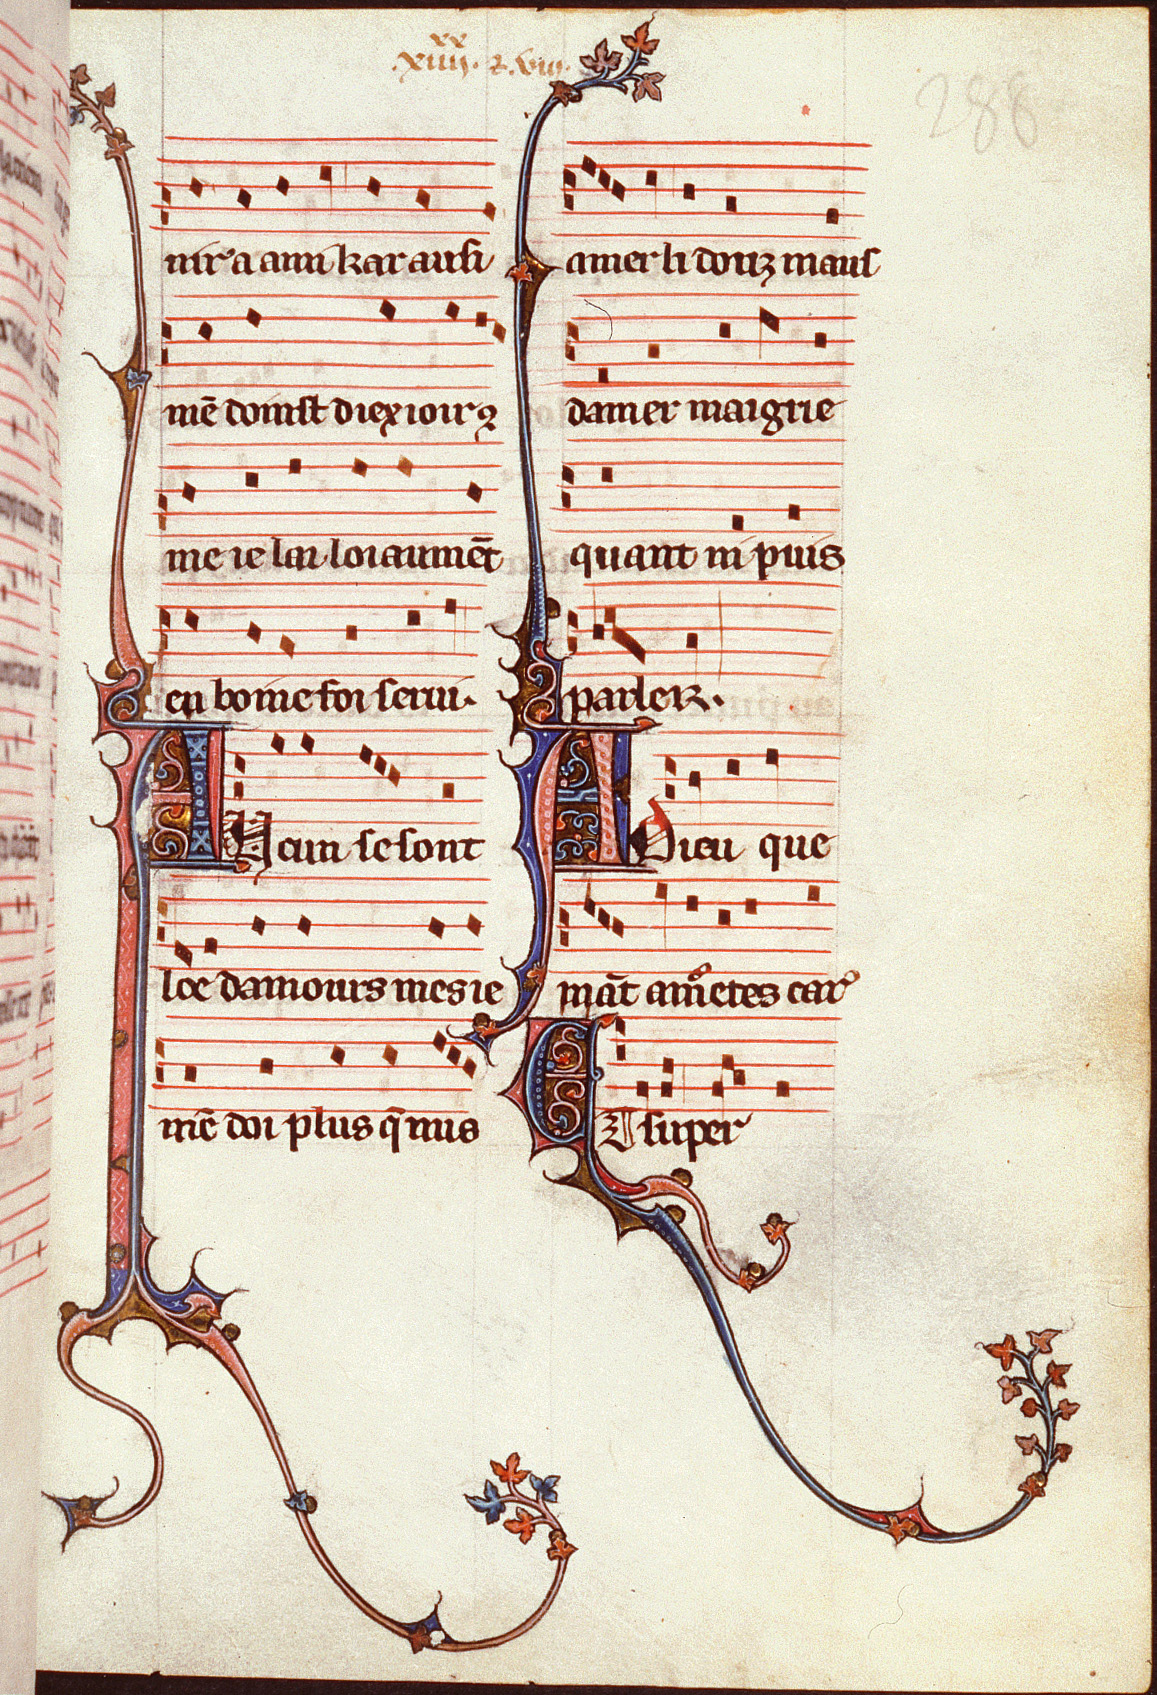 xx
.xiiij. ⁊.viij.
288
nir a ami kar ausi
mē doinst diex ioir q̄
me ie lai loiaumēt
en bonne foi serui.
AUcun se sont
loe damours mes ie
mē doi plus q̄ nus
amer li douz maus
damer maigrie
quant ni puis
parler.
A Dieu que
māt amoretes car
ET super